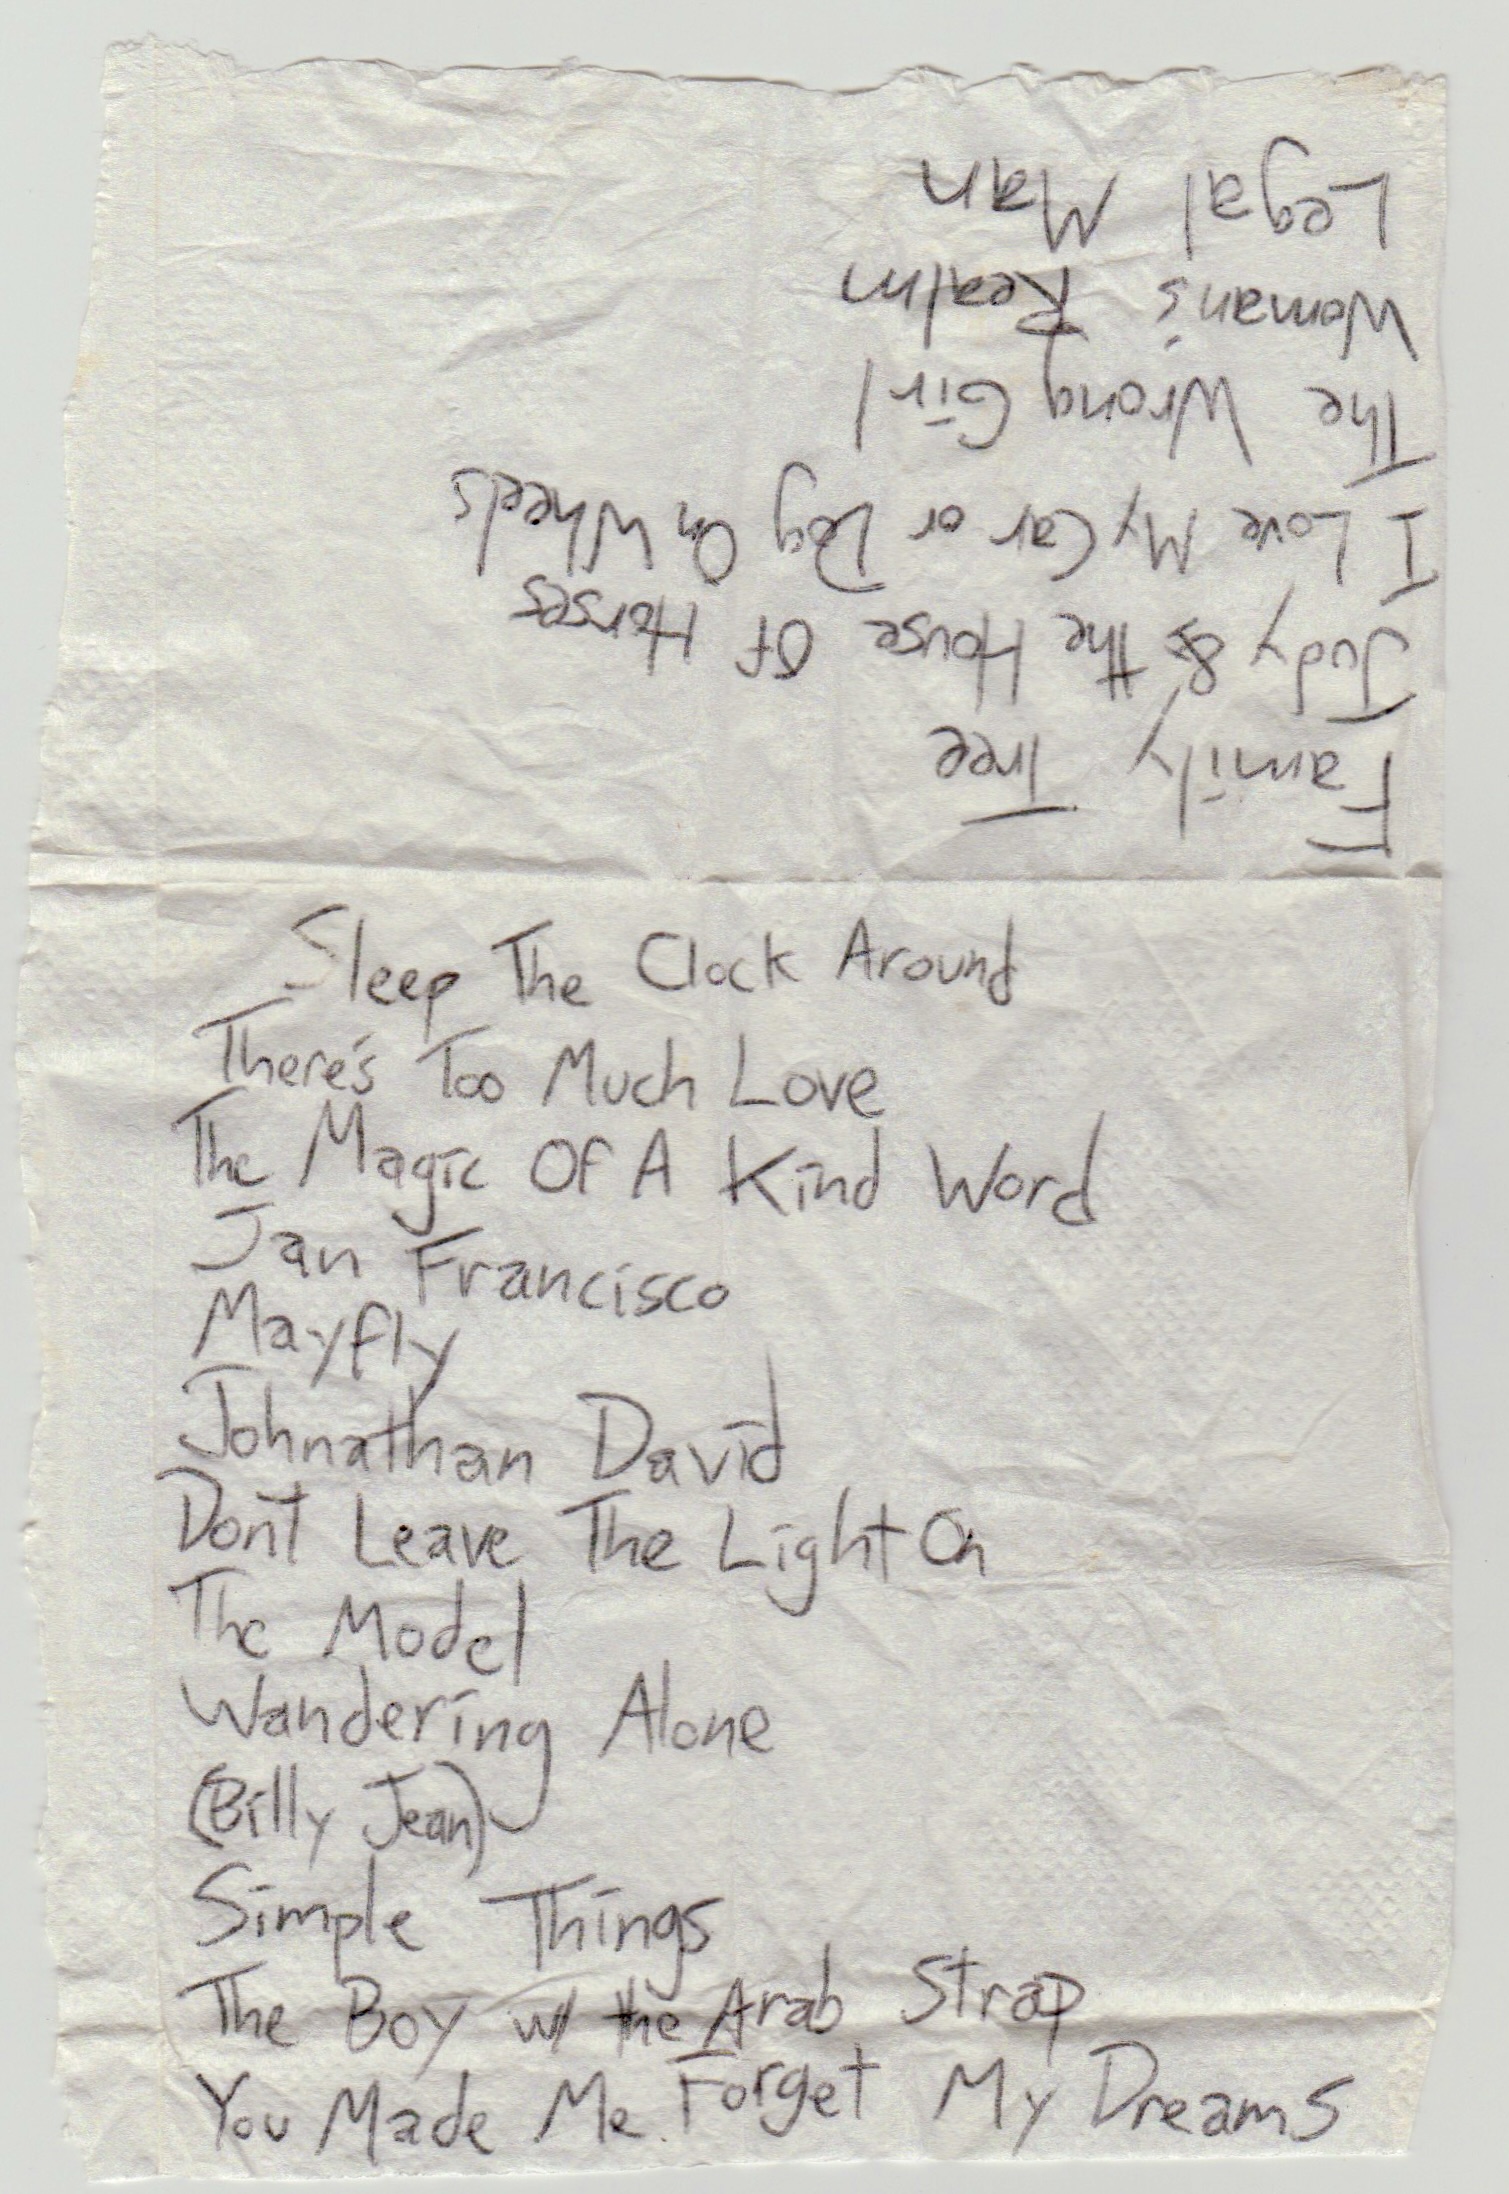 Sleep The Clock Around
There's Too Much Love
The Magic Of A Kind Word
Jan Francisco
Mayfly
Johnathan David
Don't Leave The Light On
The Model
Wandering Alone
(Billy Jean)
Simple Things
The Boy w/ the Arab Strap
You Made Me Forget My Dreams
Family Tree
Judy & the House Of Horses
I Love My Car or Dog On Wheels
The Wrong Girl
Woman's Realm
Legal Man